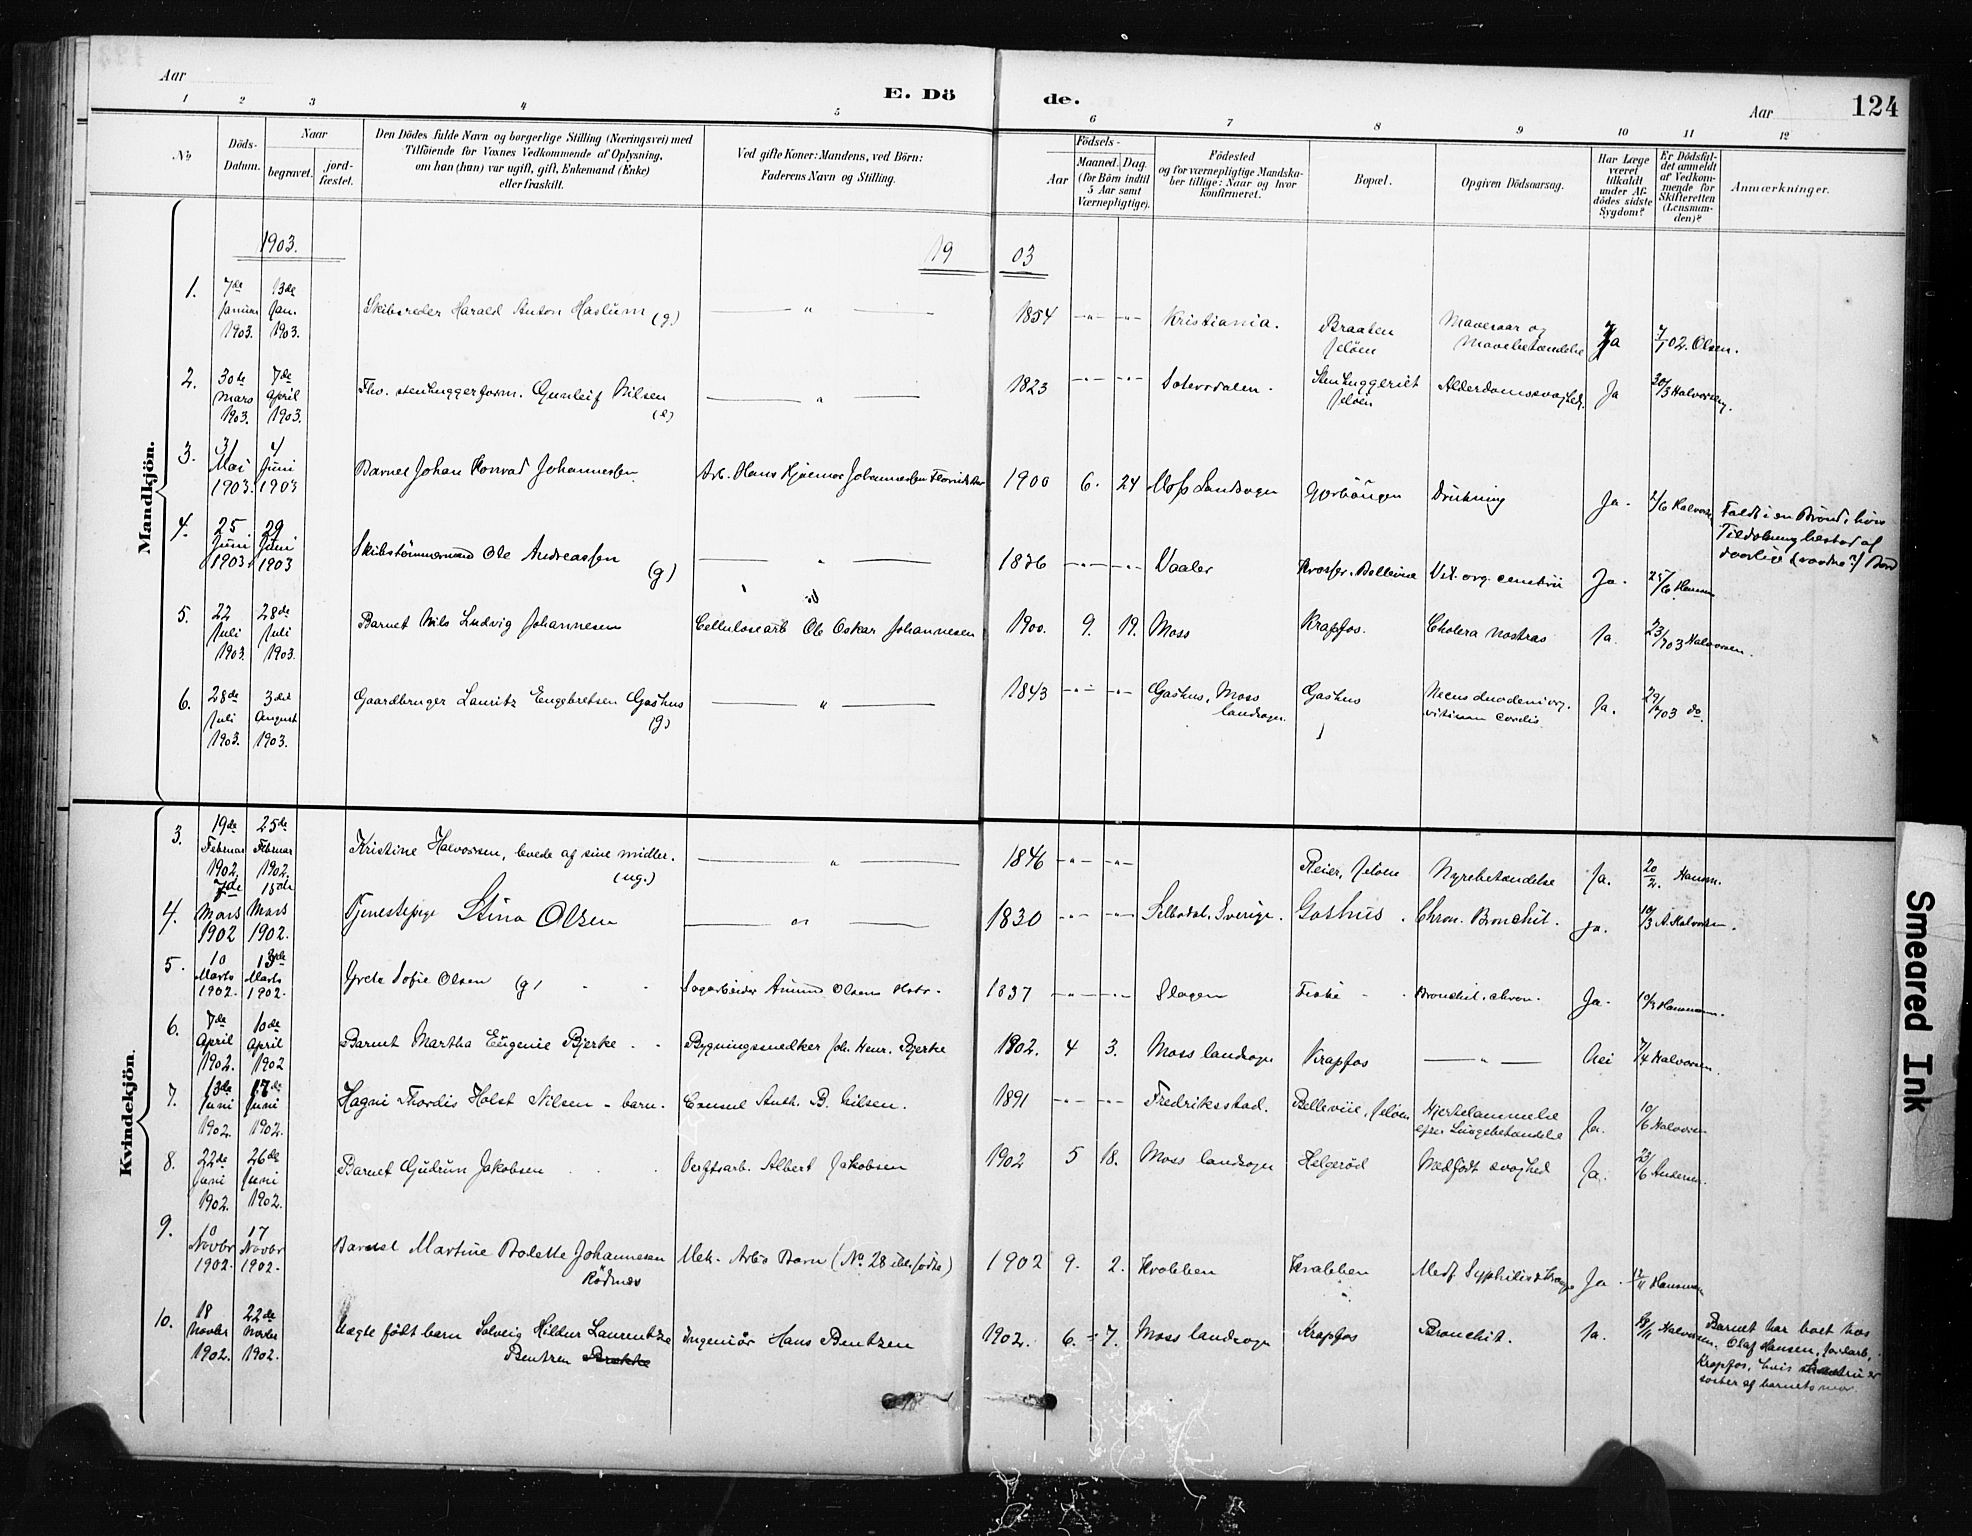 Aar
E. Dö
de.
Aar
124
1 2 3 4 5 6 7 8 9 10 11 12
No
Döds-
Datum.
Naar
begravet.
jord-
fæstet.
Den Dödes fulde Navn og borgerlige Stilling (Næringsvei) med
Tilföiende for Voxnes Vedkommende af Oplysning,
om han (hun) var ugift, gift, Enkemand (Enke)
eller fraskilt.
Ved gifte Koner: Mandens, ved Börn:
Faderens Navn og Stilling.
Födsels-
Aar
Maaned.
Dag.
(for Börn indtil
5 Aar samt
Værnepligtige).
Födested
og for værnepligtige Mandska-
ber tillige: Naar og hvor
konfirmeret.
Bopæl.
Opgiven Dödsaarsag.
Har Læge
været
tilkaldt
under Af-
dödes sidste
Sygdom?
Er Dödsfal-
det anmeldt
af Vedkom-
mende for
Skifteretten
(Lensman-
den)?
Anmærkninger.
Mandkjön.
1903.
19 03
1. 7de Januar 1903. 13de Jan. 1903. Skibsreder Harald Anton Haslum (g) — " — 1854 -"- -"- Kristiania. Braaten Jeløen Mavesaar og Mavebetændelse Ja 7/1 02. Olsen.
2. 30te Mars 1903. 7de April 1903. Fhv. stenhuggerform. Gunleif Nilsen (e) — " — 1823 -"- -"- Stenhuggeriet Jeløen Alderdomssvaghed. Ja 30/3 Halvorsen.
3. 31 Mai 1903. 4 Juni 1903 Barnet Johan Konrad Johannessen Arb. Hans Hjalmar Johannessen 1900 6. 24 Moss Landsogn Drukning Ja. 2/6 Halvorsen Faldt i en Brønd, hvis
Tildækning bestod af
daarlige
4. 25 Juni 1903 29 Juni 1903 Skibstømmermand Ole Andreassen (g) — " — 1836 -"- -"- Vaaler Krosser, Bellevue Vit. org. Ja. 25/6 Hansen
5. 22 Juli 1903. 28de Juli 1903. Barnet Nils Ludvig Johannesen Cellulosearb Ole Oskar Johannesen 1900. 9. 19. Moss Krapfos. Cholera nostras Ja. 23/7 03 Halvorsen.
6. 28de Juli 1903. 3die August 1903. Gaardbruger Lauritz Engebretsen Gashus (g) — " — 1843 -"- -"- Gashus, Moss landsogn. Gashus cordis Ja. 29/7 03 do.
Kvindekjön.
3. 19de Februar 1902. 25de Februar 1902. Kristine Halvorsen, levede af sine midler. (ug.) — " — 1846 -"- -"- Reier, Jeløen Nyrebetændelse Ja. 20/2. Hansen.
4. 7de Mars 1902 15de Mars 1902. Tjenestepige Stina Olsen — " — 1830 -"- -"- Selbodal, Sverige. Gashus. Chron. Bronchit. Ja. 10/3 A. Halvorsen.
5. 10 Marts 1902. 13de Marts 1902. Grete Sofie Olsen (g) Sagarbeider Amund Olsens 1837 -"- -"- Slagen Bronchit. chron. Ja. 10/3 Hansen.
6. 7de April 1902. 10de April 1902 Barnet Martha Eugenie Bjerke Bygningssnedker Joh. Henr. Bjerke 1902. 4 3. Moss landsogn Krapfos — " — Nei 7/4 Halvorsen.
7. 13de Juni 1902. 17de Juni 1902. Hagni Thordis Holst Nilsen - barn. Consul Anth. B. Nilsen. 1891 -"- -"- Fredriksstad. Bellevue, Jeløen Hjertelammelse efter Lungebetændelse Ja. 10/6 Halvorsen
8. 22de Juni 1902. 26de Juni 1902. Barnet Gudrun Jakobsen Verftsarb. Albert Jakobsen 1902 5 18. Moss landsogn Helgerød Medfødt svaghed Ja. 23/6 Andersen.
9. 10 Novbr 1902. 17 Novbr 1902. Barnet Martine Bolette Johannesen Rödnæs Mek. Arbs Barn (No 28 ibl. fødte) 1902 9. 2. Kvalehen Kvalehen Medf. Syphilis & Krampe Ja. 12/11 Hansen
10. 18 Novbr 1902. 22de Novbr 1902. Uægte födt barn Solveig Hildur Laurentze Bentzen Brække Ingeniör Hans Bentzen 1902. 6. 7. Moss landsogn Krapfos Bronchit. Ja. 18/11 Halvorsen. Barnet har boet hos
Olaf Hansen,
Krapfos, hvis hustru er
søster af barnets mor.
Smeared Ink